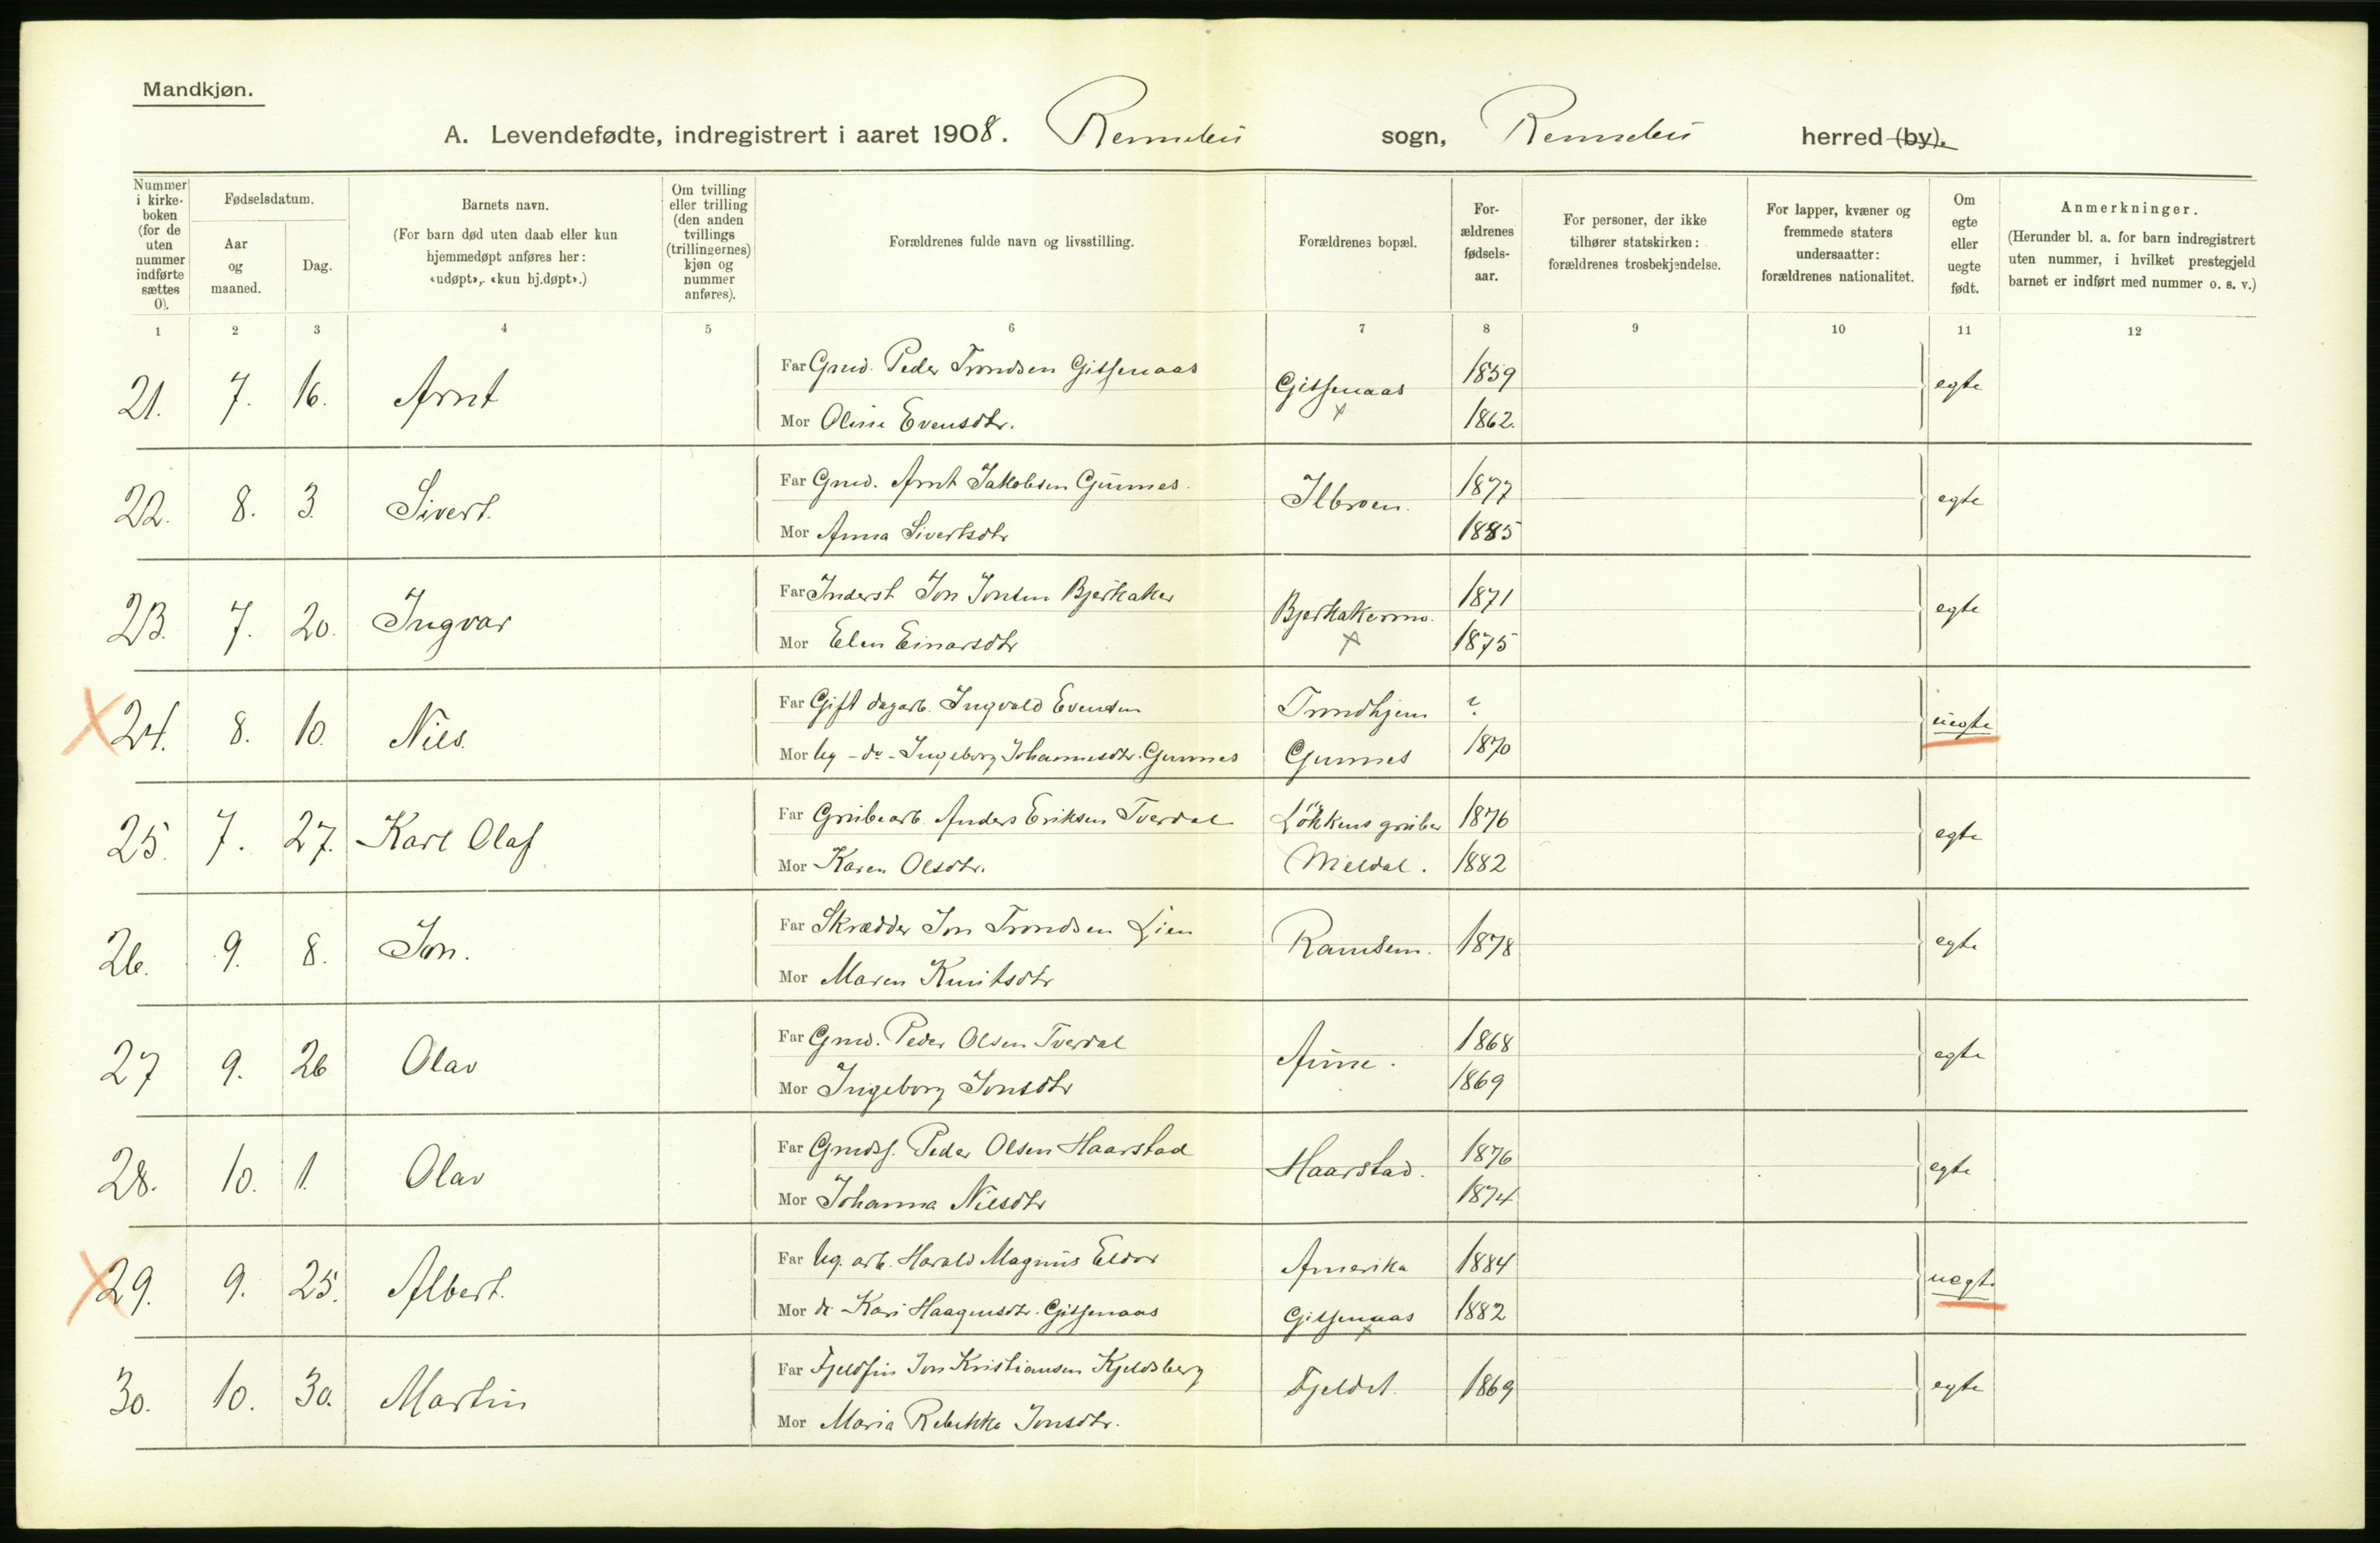 Mandkjøn.
A. Levendefødte, indregistrert i aaret 1908. Rennebu sogn, Rennebu herred (by).
Nummer i kirke-boken (for de uten nummer indførte sættes 0).
Fødselsdatum.
Aar og maaned.
Dag.
Barnets navn.
(For barn død uten daab eller kun hjemmedøpt anføres her: «udøpt», «kun hj.døpt».)
Om tvilling eller trilling (den anden tvillings (trillingernes) kjøn og nummer anføres).
Forældrenes fulde navn og livsstilling.
Forældrenes bopæl.
For-ældrenes fødsels-aar.
For personer, der ikke tilhører statskirken: forældrenes trosbekjendelse.
For lapper, kvæner og fremmede staters undersaatter: forældrenes nationalitet.
Om egte eller uegte født.
Anmerkninger.
(Herunder bl. a. for barn indregistrert uten nummer, i hvilket prestegjeld barnet er indført med nummer o. s. v.)
1 2 3 4 5 6 7 8 9 10 11 12
21. 7. 16. Arnt Far Grmd. Peder Trondsen Gisnaas Gisnaas 1859 egte
Mor Oline Evensdtr. x 1862.
22. 8. 3. Sivert. Far Grmd. Arnt Jakobsen Gunnes. Ilbroen. 1877 egte
Mor Anna Sivertsdtr 1885
23. 7. 20. Ingvar Far Inderst Jon Jonsen Bjerkaker Bjerkakermo. 1871 egte
Mor Elen Einarsdtr x 1875
X 24. 8. 10. Nils. Far Gift dagarb. Ingvald Evensen Trondhjem ? uegte
Mor ug -do- Ingeborg Johannesdtr. Gunnes Gunnes 1870
25. 7. 27. Karl Olaf Far Grubearb. Anders Eriksen Tverdal Løkkens gruber 1876 egte
Mor Karen Olsdtr. Meldal. 1882
26. 9. 8. Jon. Far Skrædder Jon Trondsen Lien Ramsem. 1878 egte
Mor Maren Knutsdtr
27 9. 26 Olav Far Grmd. Peder Olsen Tverdal Aune. 1868 egte
Mor Ingeborg Jonsdtr 1869
28. 10. 1. Olav Far Grmds. Peder Olsen Haarstad Haarstad. 1876 egte
Mor Johanna Nilsdtr 1874
X 29. 9. 25. Albert. Far Ug. arb. Harald Magnus Eldor Amerika 1884 uegte
Mor do Kari Haagensdtr. Gisnaas Gisnaas x 1882
30. 10. 30. Martin Far Jon Kristiansen Kjeldsberg Fjeldet. 1869 egte
Mor Maria Rebekka Jonsdtr.